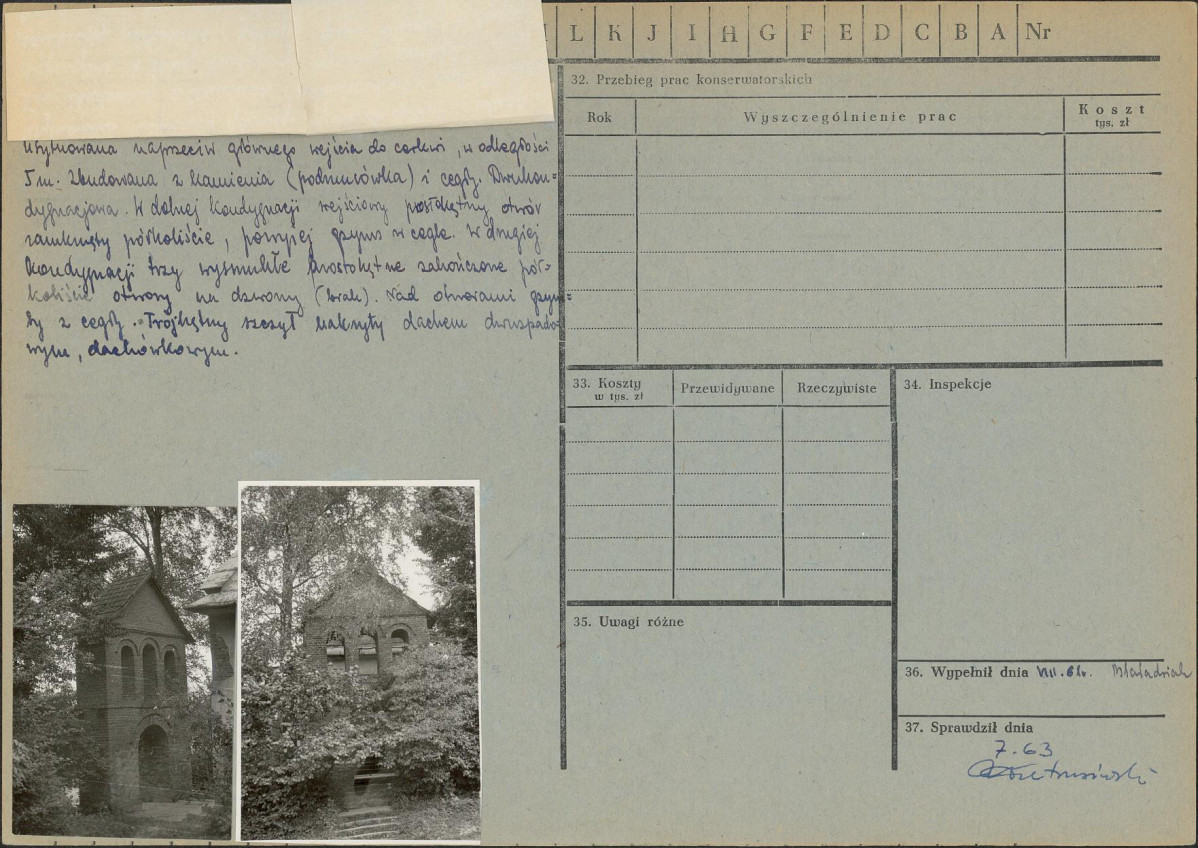 L K J I H G F E D C B A Nr
usytuowana naprzeciw głównego wejścia do cerkwi, w odległości
5 m. Zbudowana z kamienia (podmurówka) i cegły. Dwukon=
dygnacjowa. W dolnej kondygnacji wejściowy prostokątny otwór
zamknięty półkoliście, powyżej gzyms w cegle. W drugiej
kondygnacji trzy wysmukłe prostokątne zakończone pół=
koliście otwory na dzwony (brak). Nad otworami gzym=
sy z cegły. Trójkątny szczyt nakryty dachem dwuspado
wym, dachówkowym.
32. Przebieg prac konserwatorskich
Rok
Wyszczególnienie prac
Koszt
tys. zł
33. Koszty
w tys. zł
Przewidywane
Rzeczywiste
34. Inspekcje
35. Uwagi różne
36. Wypełnił dnia VIII.61r.
37. Sprawdził dnia
7.63